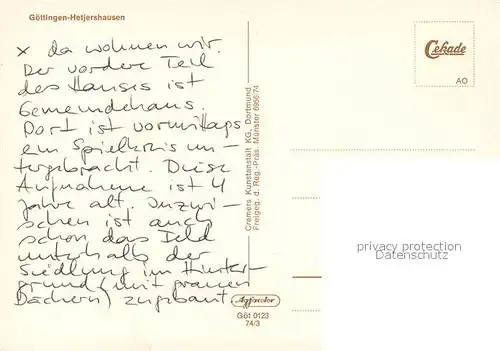 Göttingen-Hetjershausen
x da wohnen wir.
Der vordere Teil
des Hauses ist
Gemeindehaus.
Dort ist vormittags
ein Spielkreis un-
tergebracht. Diese
Aufnahme ist 4
Jahre alt. Inzwi-
schen ist auch
schon das Feld
unterhalb der
Siedlung im Hinter-
grund (mit grauen
Dächern) zugebaut.
Cramers Kunstanstalt KG, Dortmund
Freigeg. d. Reg.-Präs. Münster 6956/74
Agfacolor
Göt 0123
74/3
Cekade
AO
privacy protection
AnsichtskartenVersand.com